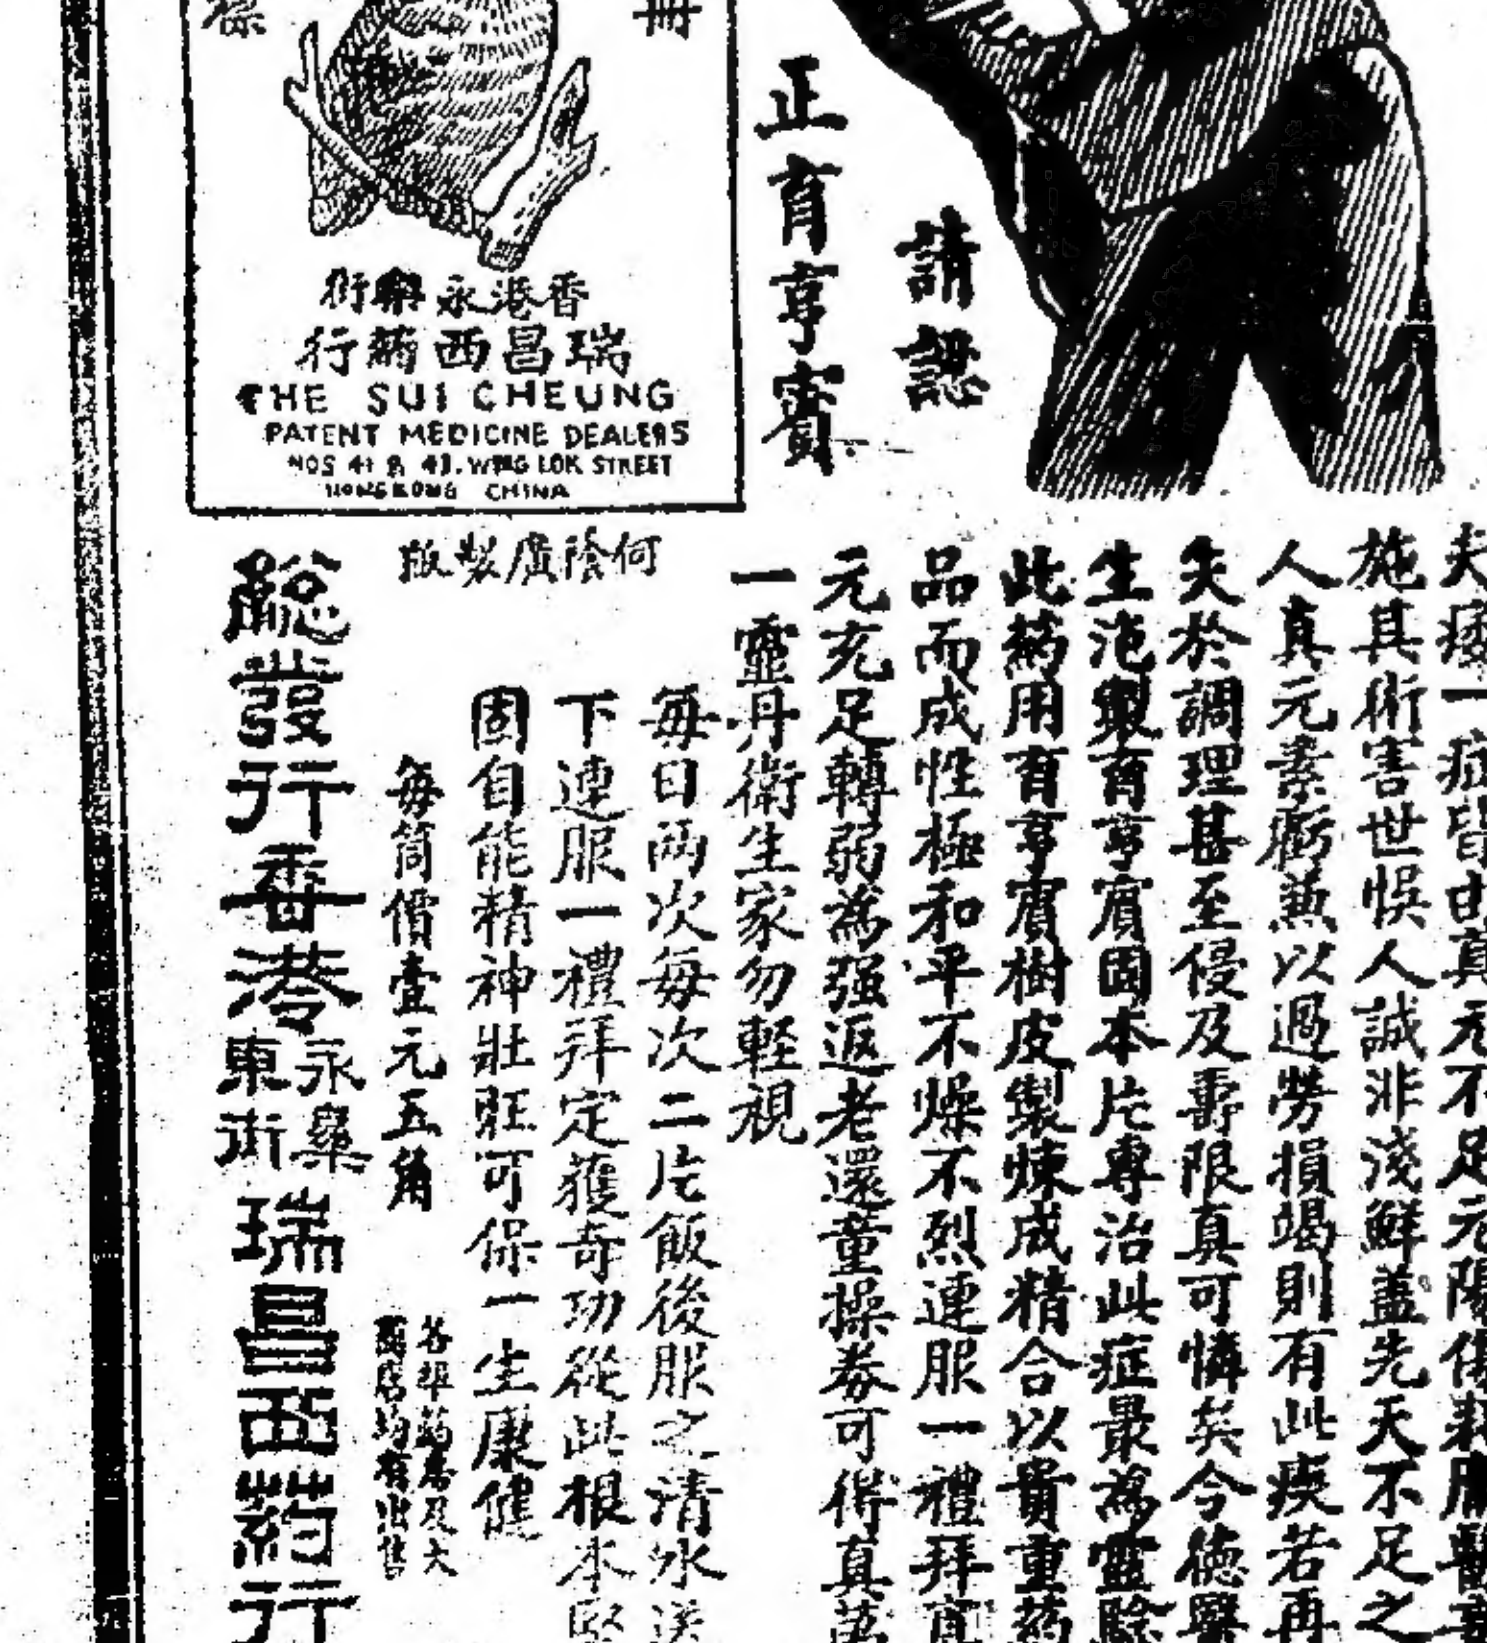 冊
正育亨賓
請認
香港永樂街
瑞昌西葯行
THE SUI CHEUNG
PATENT MEDICINE DEALERS
NOS 41 & 43. WING LOK STREET
HONGKONG CHINA
何蔭廣製版
夫痿一症皆由真元不足元陽傷耗庸醫妄
施其術害世悞人誠非淺鮮蓋先天不足之
人真元素虧兼以過勞損竭則有此痰若再
失於調理甚至侵及壽限真可憐矣今德醫
生泡製育亨賓固本片專治此症最為靈驗
此葯用育亨賓樹皮製煉成精合以貴重葯
品而成性極和平不燥不烈連服一禮拜真
元充足轉弱為强返老還童操券可得真萬
一靈丹衛生家勿輕視
每日兩次每次二片飯後服之清水送
下連服一禮拜定獲奇功從此根本堅
固自能精神壯旺可保一生康健
每筒價壹元五角
各埠葯房及大
商店均有出售
總發行香港永樂東街瑞昌西葯行